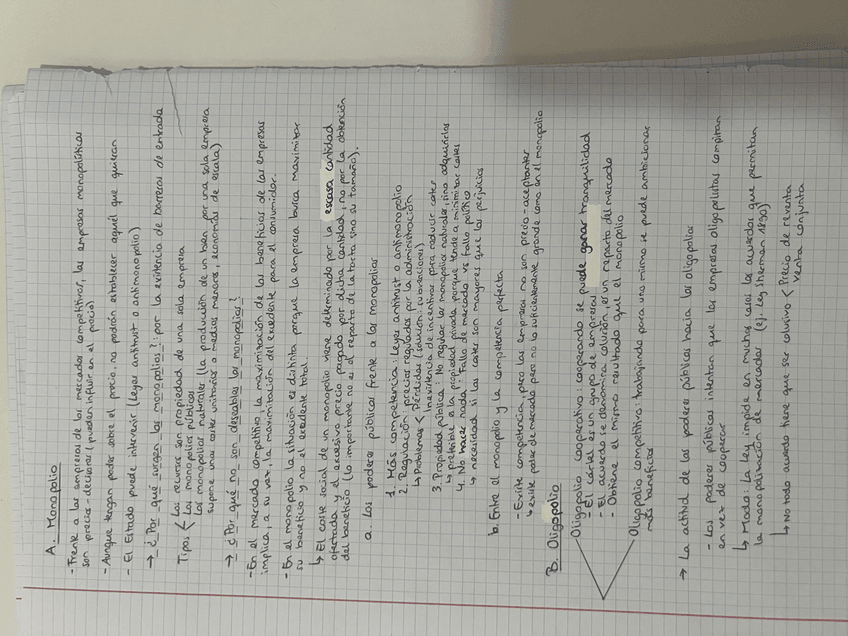 A. Monopolio
- Frente a las empresas de los mercados competitivos, las empresas monopolísticas
son precio-decisoras (pueden influir en el precio)
- Aunque tengan poder sobre el precio, no podrán establecer aquel que quieran
- El Estado puede intervenir (leyes antitrust o antimonopolio)
→ ¿Por qué surgen los monopolios?: por la existencia de barreras de entrada
Tipos < Los recursos son propiedad de una sola empresa
Los monopolios públicos
Los monopolios naturales (la producción de un bien por una sola empresa
supone unos costes unitarios o medios menores, economías de escala)
→ ¿Por qué no son deseables los monopolios?
- En el mercado competitivo, la maximización de los beneficios de las empresas
implica, a su vez, la maximización del excedente para el consumidor.
- En el monopolio la situación es distinta porque la empresa busca maximizar
su beneficio y no el excedente total.
↳ El coste social de un monopolio viene determinado por la escasa cantidad
ofertada y el excesivo precio pagado por dicha cantidad, no por la obtención
del beneficio (lo importante no es el reparto de la torta sino su tamaño).
a. Los poderes públicos frente a los monopolios
1. Más competencia: Leyes antitrust o antimonopolio
2. Regulación: precios regulados por la administración
↳ Problemas < Pérdidas (solución: subvenciones)
Inexistencia de incentivos para reducir costes
3. Propiedad pública: No regular los monopolios naturales, sino adquirirlos
↳ preferible a la propiedad privada porque tiende a minimizar costes
4. No hacer nada: Fallo de mercado vs fallo político
↳ necesidad si los costes son mayores que los perjuicios
b. Entre el monopolio y la competencia perfecta
- Existe competencia, pero las empresas no son precio-aceptantes
↳ existe poder de mercado pero no lo suficientemente grande como en el monopolio
B. Oligopolio
Oligopolio cooperativo: cooperando se puede ganar tranquilidad
- El cártel es un grupo de empresas
- El acuerdo se denomina colusión, es un reparto del mercado
- Obtiene el mismo resultado que el monopolio
Oligopolio competitivo: trabajando para uno mismo se puede ambicionar
más beneficios
→ La actitud de los poderes públicos hacia los oligopolios
- Los poderes públicos intentan que las empresas oligopolistas compitan
en vez de cooperar
↳ Modo: La ley impide en muchos casos los acuerdos que permitan
la monopolización de mercados (ej. Ley Sherman 1890)
↳ No todo acuerdo tiene que ser colusivo < Precio de reventa
Venta conjunta